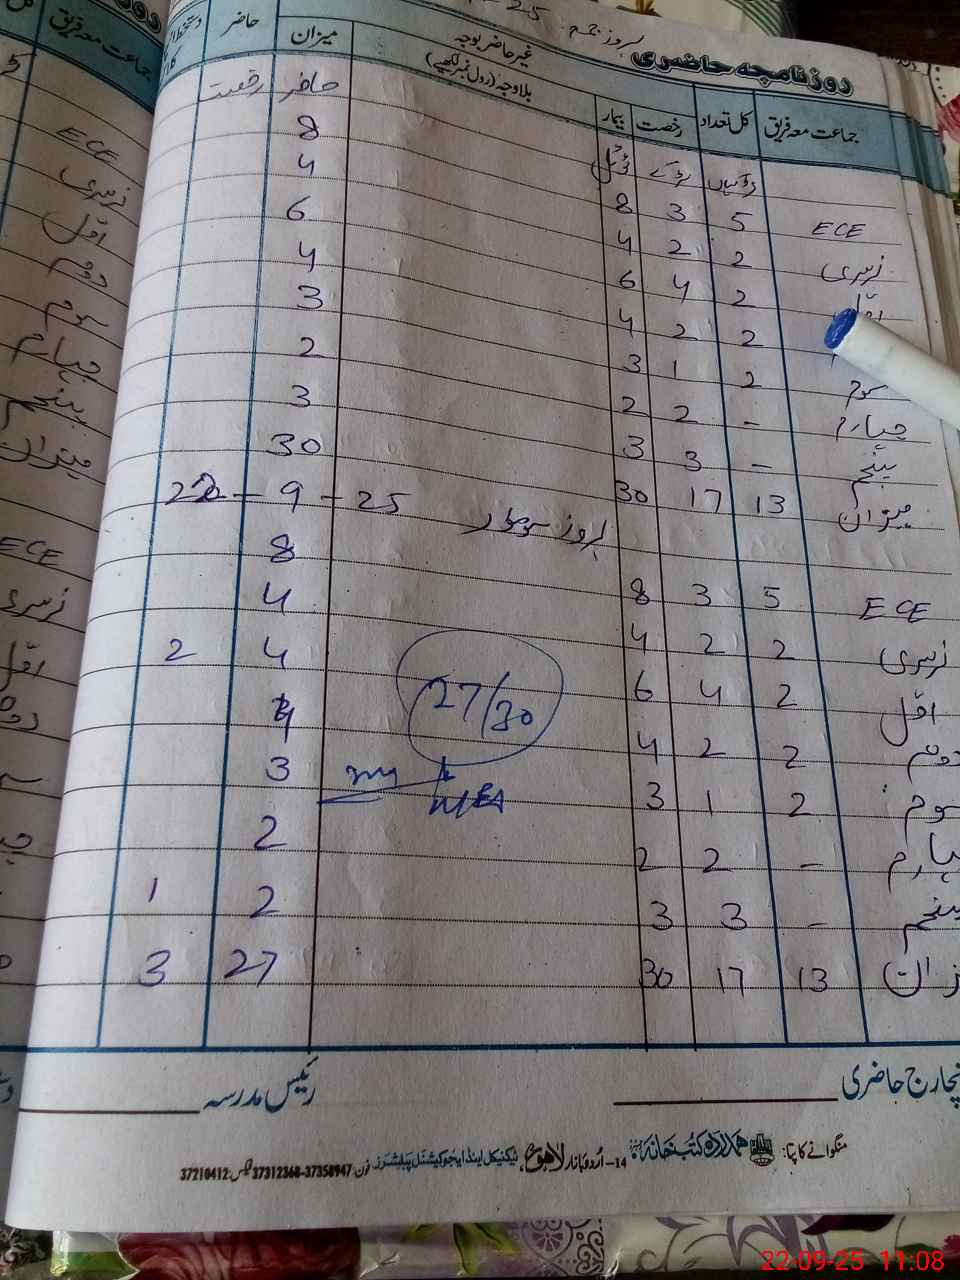 روزنامچہ حاضری بروز جمعہ 25
جماعت معہ فریق کل تعداد رخصت بیمار غیر حاضر بوجہ بلاوجہ (رول نمبر لکھیے) میزان حاضر
لڑکیاں لڑکے ٹوٹل حاضر رخصت
ECE 5 3 8 8
نرسری 2 2 4 4
2 4 6 6
2 2 4 4
سوم 2 1 3 3
چہارم - 2 2 2
پنجم - 3 3 3
میزان 13 17 30 30
بروز سوموار 22-9-25
ECE 5 3 8 8
نرسری 2 2 4 4
اول 2 4 6 4 2
دوم 2 2 4 4
سوم 2 1 3 3
چہارم - 2 2 2
پنجم - 3 3 2 1
میزان 13 17 30 27 3
27/30
MEA
انچارج حاضری
رئیس مدرسہ
منگوانے کا پتا: ہمدرد کتب خانہ 14-اُردو بازار لاہور، ٹیکنیکل اینڈ ایجوکیشنل پبلیشرز فون: 37358947-37312368 فیکس: 37210412
جماعت معہ فریق
ECE
نرسری
اول
دوم
سوم
چہارم
پنجم
میزان
ECE
نرسری
اول
22-09-25 11:08